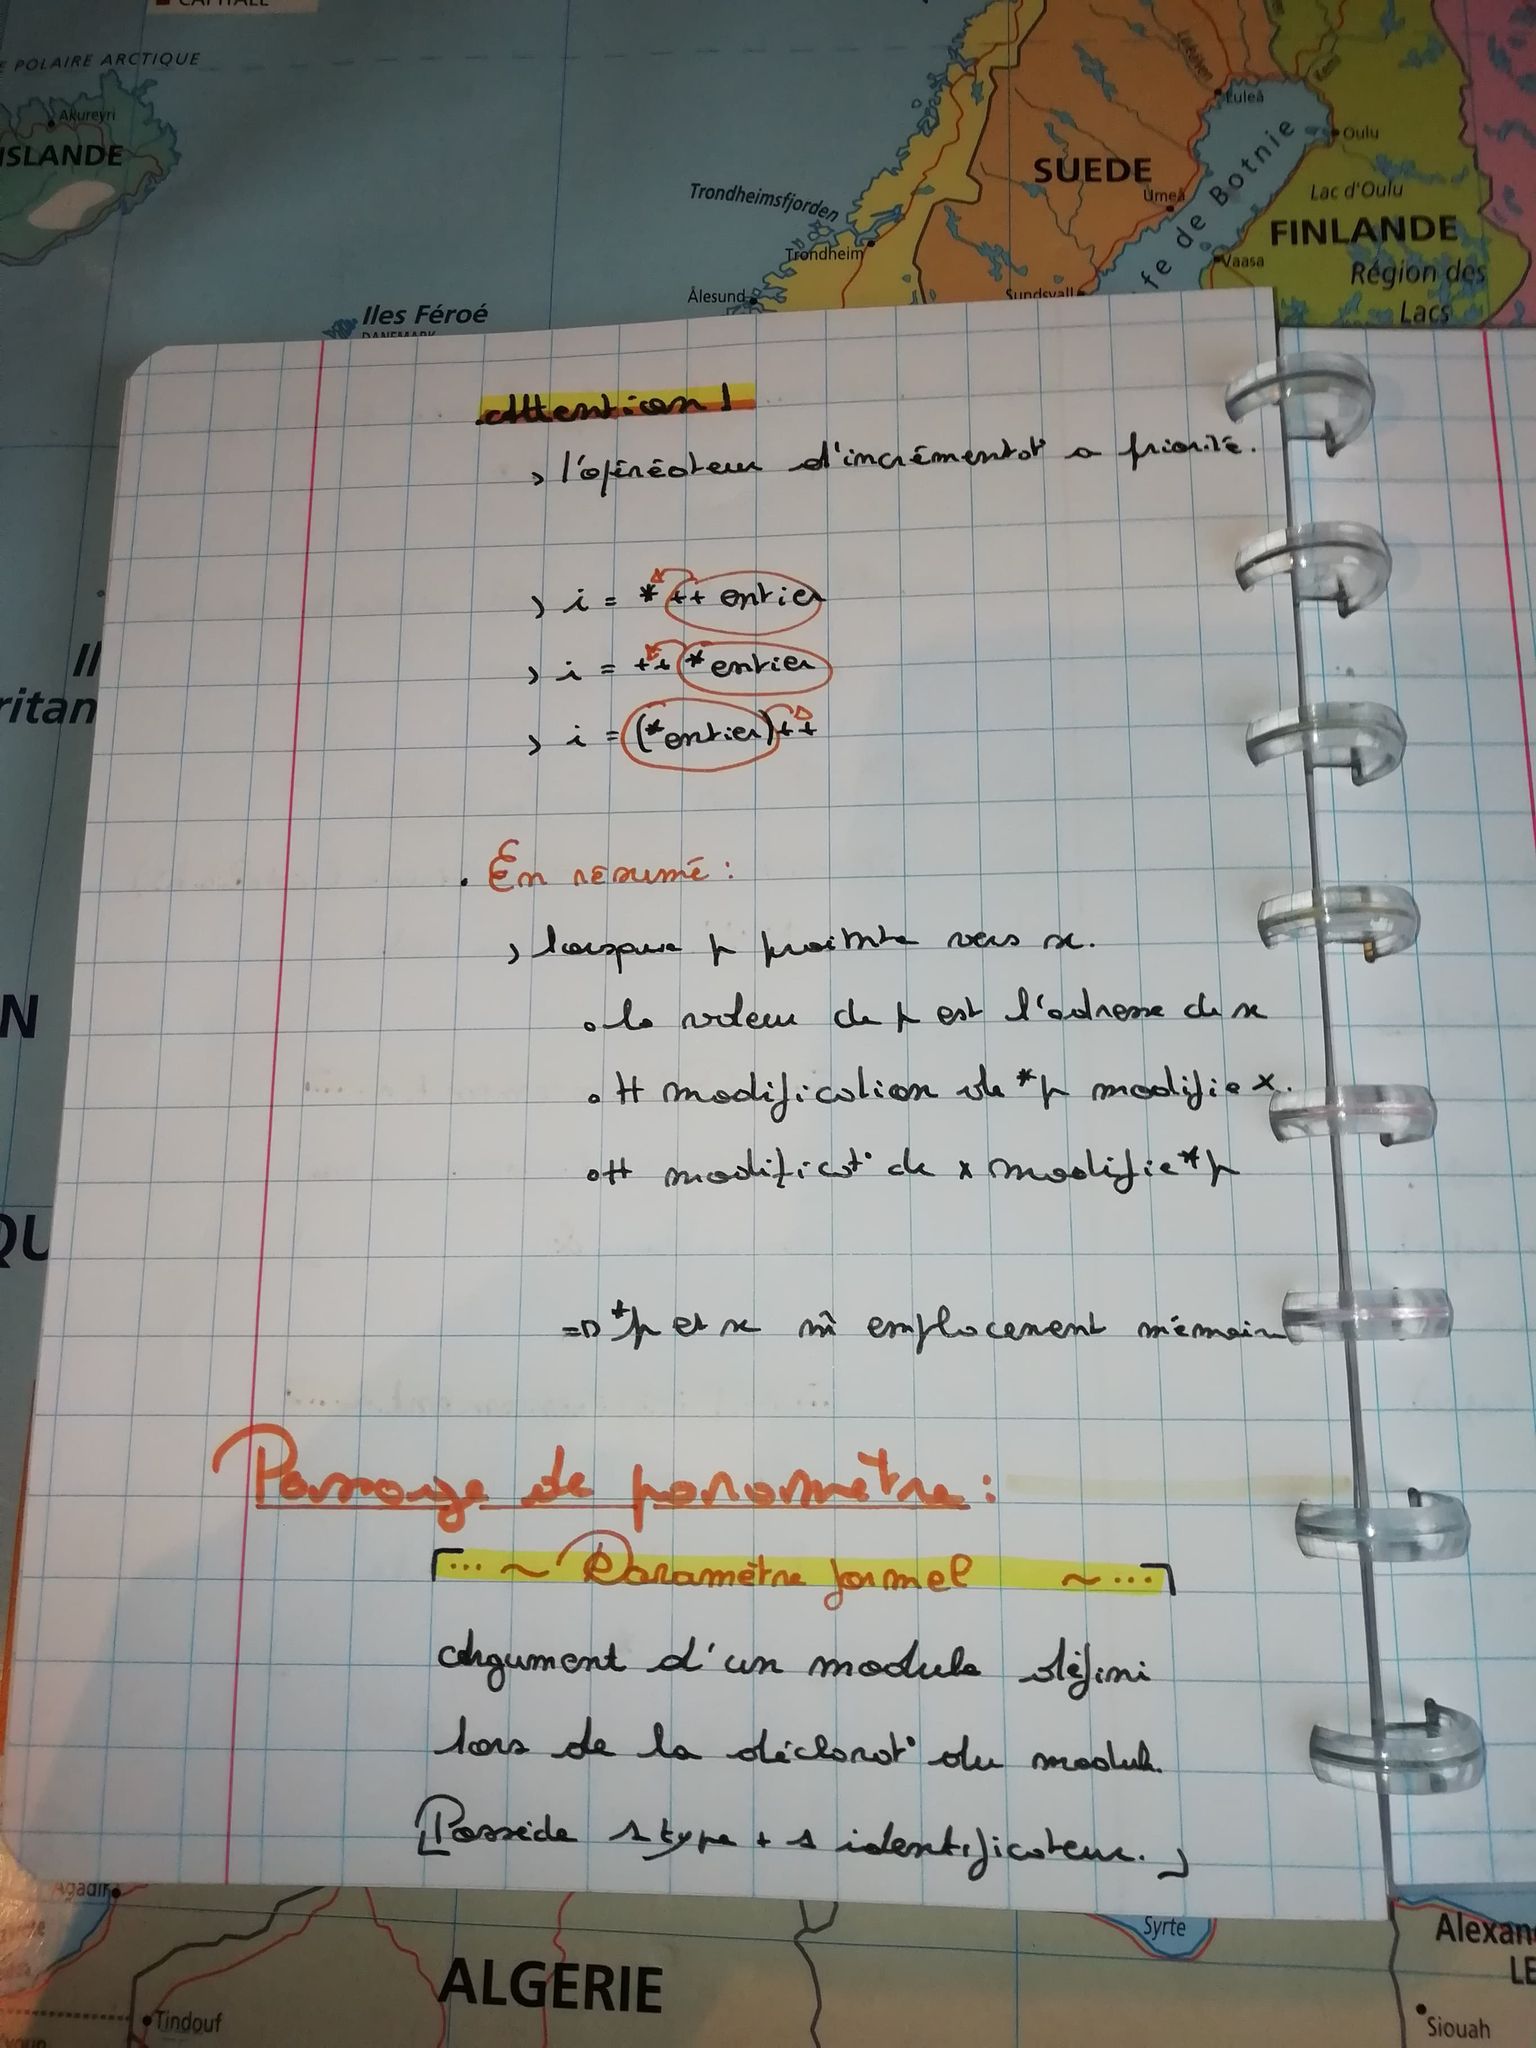 CAPITALE
E POLAIRE ARCTIQUE
Akureyri
ISLANDE
Trondheimsfjorden
Trondheim
Ålesund
Iles Féroé
DANEMARK
SUEDE
Umeå
Sundsvall
Luleå
Oulu
Lac d'Oulu
fe de Botnie
FINLANDE
Vaasa
Région des
Lacs
Attention !
> l'opérateur d'incrémentat° a priorité.
> i = * ++ entier
> i = ++ *entier
> i = (*entier)++
. En résumé :
> lorsque p pointe vers x.
o la valeur de p est l'adresse de x
o tt modification de *p modifie x.
o tt modificat° de x modifie *p
=> *p et x m̂ emplacement mémoire
Passage de paramètre :
... ~ Paramètre formel ~ ...
Argument d'un module défini
lors de la déclarat° du module.
[Possède 1 type + 1 identificateur.]
Il
ritan
N
QU
Agadir
Tindouf
ALGERIE
Syrte
Alexan
LE
Siouah